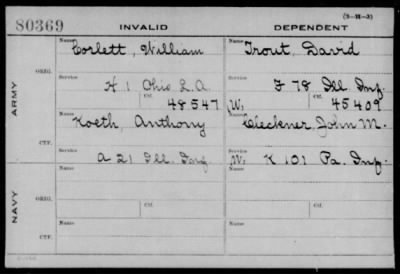 80369 INVALID DEPENDENT (3-11-3)
ARMY
ORIG.
Name Corlett, William Name Trout, David
Service H 1 Ohio L.A. Service F 78 Ill Inf.
Ctf. 48547 W. Ctf. 45409
CTF.
Name Koeth, Anthony Name Cleckner, John M.
Service A 21 Ill. Inf. Service W. K 101 Pa. Inf.
NAVY
ORIG.
Name Name
Service Service
Ctf. Ctf.
CTF.
Name Name